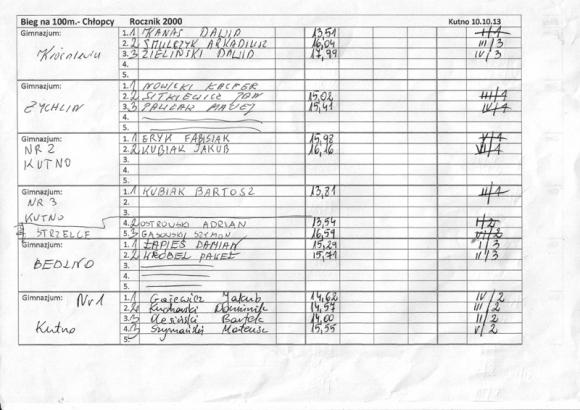 Bieg na 100m.- Chłopcy Rocznik 2000 Kutno 10.10.13
Gimnazjum: 1. 1 KANAS DAWID 13,51
2. 2 SMULCZYK ARKADIUSZ 16,04 III/3
3. 3 ZIELIŃSKI DAWID 17,99 IV/3
4.
5.
Gimnazjum: 1. 1 NOWICKI KACPER
ŻYCHLIN 2. 2 SITKIEWICZ JAN 15,02
3. 3 PAWLAK MACIEJ 15,41
4.
5.
Gimnazjum: 1. 1 ERYK FABISIAK 15,98
NR 2 2. 2 KUBIAK JAKUB 16,16
KUTNO 3.
4.
5.
Gimnazjum: 1. 1 KUBIAK BARTOSZ 13,81
NR 3 2.
KUTNO 3.
4. 2 OSTROWSKI ADRIAN 13,54 I/2
STRZELCE 5. 3 GASOWSKI SZYMON 16,59
Gimnazjum: 1. 1 ŁAPIEŚ DAMIAN 15,29 I/3
BEDLNO 2. 2 WRÓBEL PAWEŁ 15,71 II/3
3.
4.
5.
Gimnazjum: Nr 1 1. 1 Gajewicz Jakub 14,62 IV/2
2. 2 Kucharski Dominik 14,57 III/2
Kutno 3. 3 Olesiński Bartek 14,00 II/2
4. Szymański Mateusz 15,55 V/2
5.